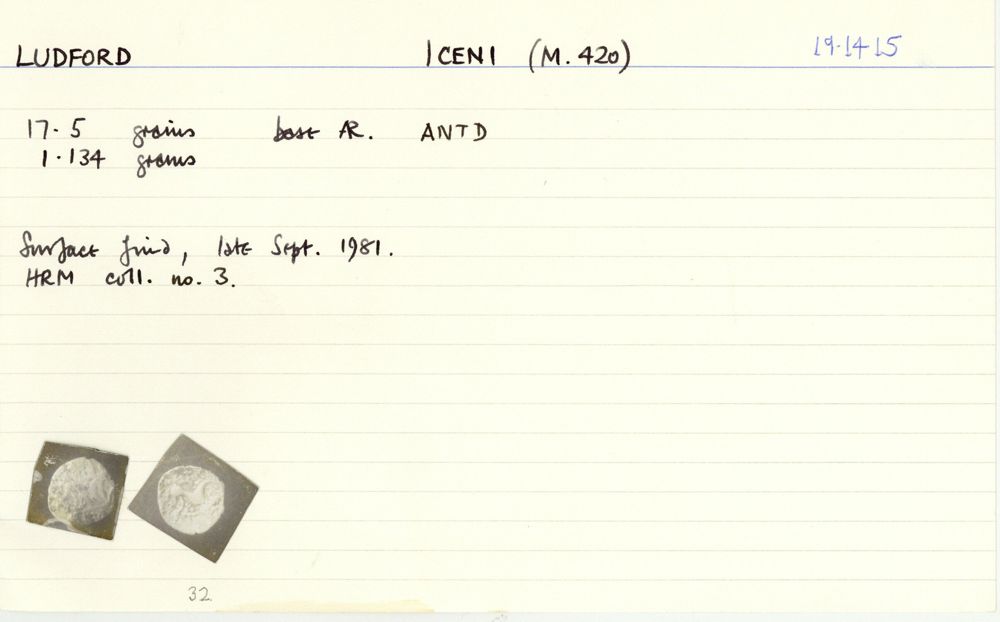 LUDFORD ICENI (M. 420) 19·1415
17·5 grains base AR. ANTD
1·134 grams
Surface find, late Sept. 1981.
HRM coll. no. 3.
32